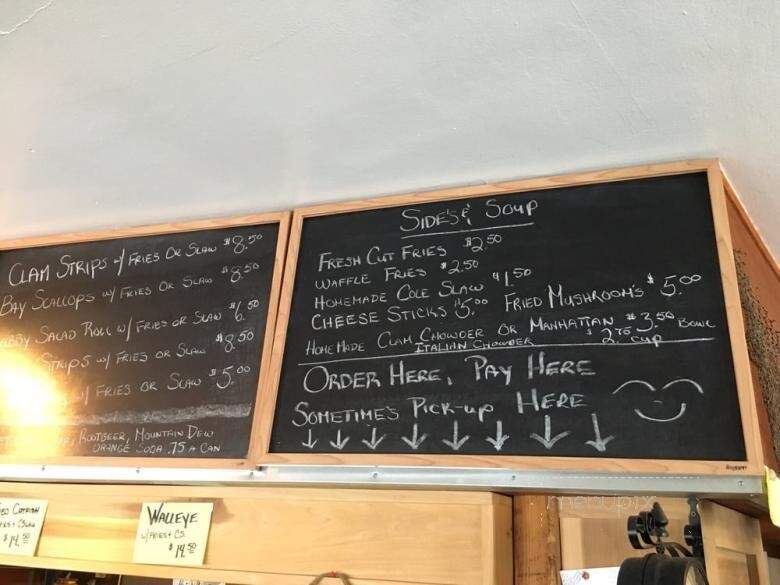 CLAM STRIPS w/ FRIES OR SLAW $8.50
BAY SCALLOPS w/ FRIES OR SLAW $8.50
SALAD ROLL w/ FRIES OR SLAW $6.50
STRIPS w/ FRIES OR SLAW $8.50
w/ FRIES OR SLAW $5.00
ROOTBEER, MOUNTAIN DEW
ORANGE SODA .75 A CAN
SIDE'S & SOUP
FRESH CUT FRIES $2.50
WAFFLE FRIES $2.50
HOMEMADE COLE SLAW $1.50
CHEESE STICKS $5.00 FRIED MUSHROOM'S $5.00
HOME MADE CLAM CHOWDER OR MANHATTAN $3.50 BOWL
ITALIAN CHOWDER $2.75 CUP
ORDER HERE, PAY HERE
SOMETIME'S PICK-UP HERE
WALLEYE
w/ FRIES + CS.
$14.50
menupix